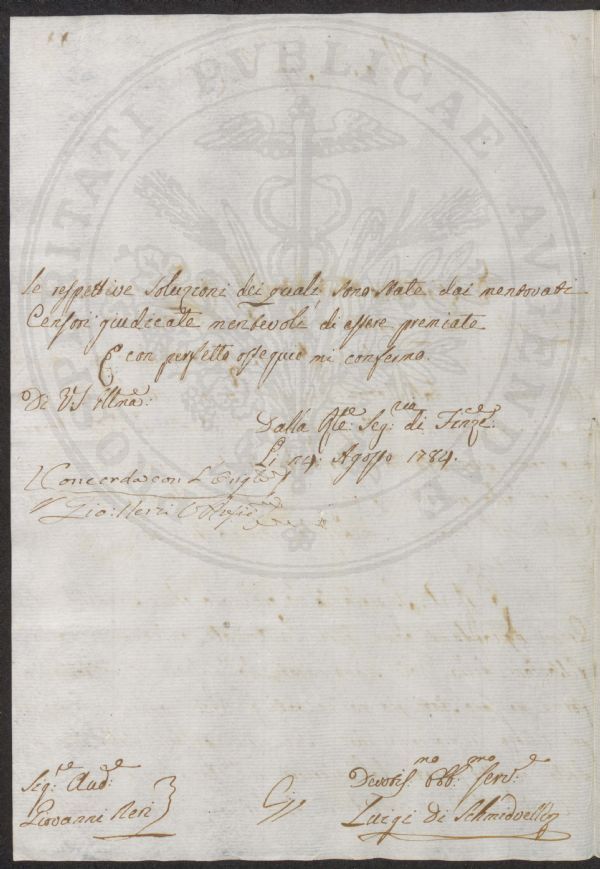 PROSPERITATI PVBLICAE AVGENDAE
le respettive Soluzioni dei quali sono state dai mentovati
Censori giudicate meritevoli di essere premiate
E con perfetto ossequio mi confermo.
Di VS Illma:
Dalla Rle. Segria. di Finze.
Li 14. Agosto 1784.
Concorda con l'Origle
Gio: Neri
Sigre. Aude.
Giovanni Neri
Devotismo. Obbmo. Serve.
Luigi Di Schmidveller